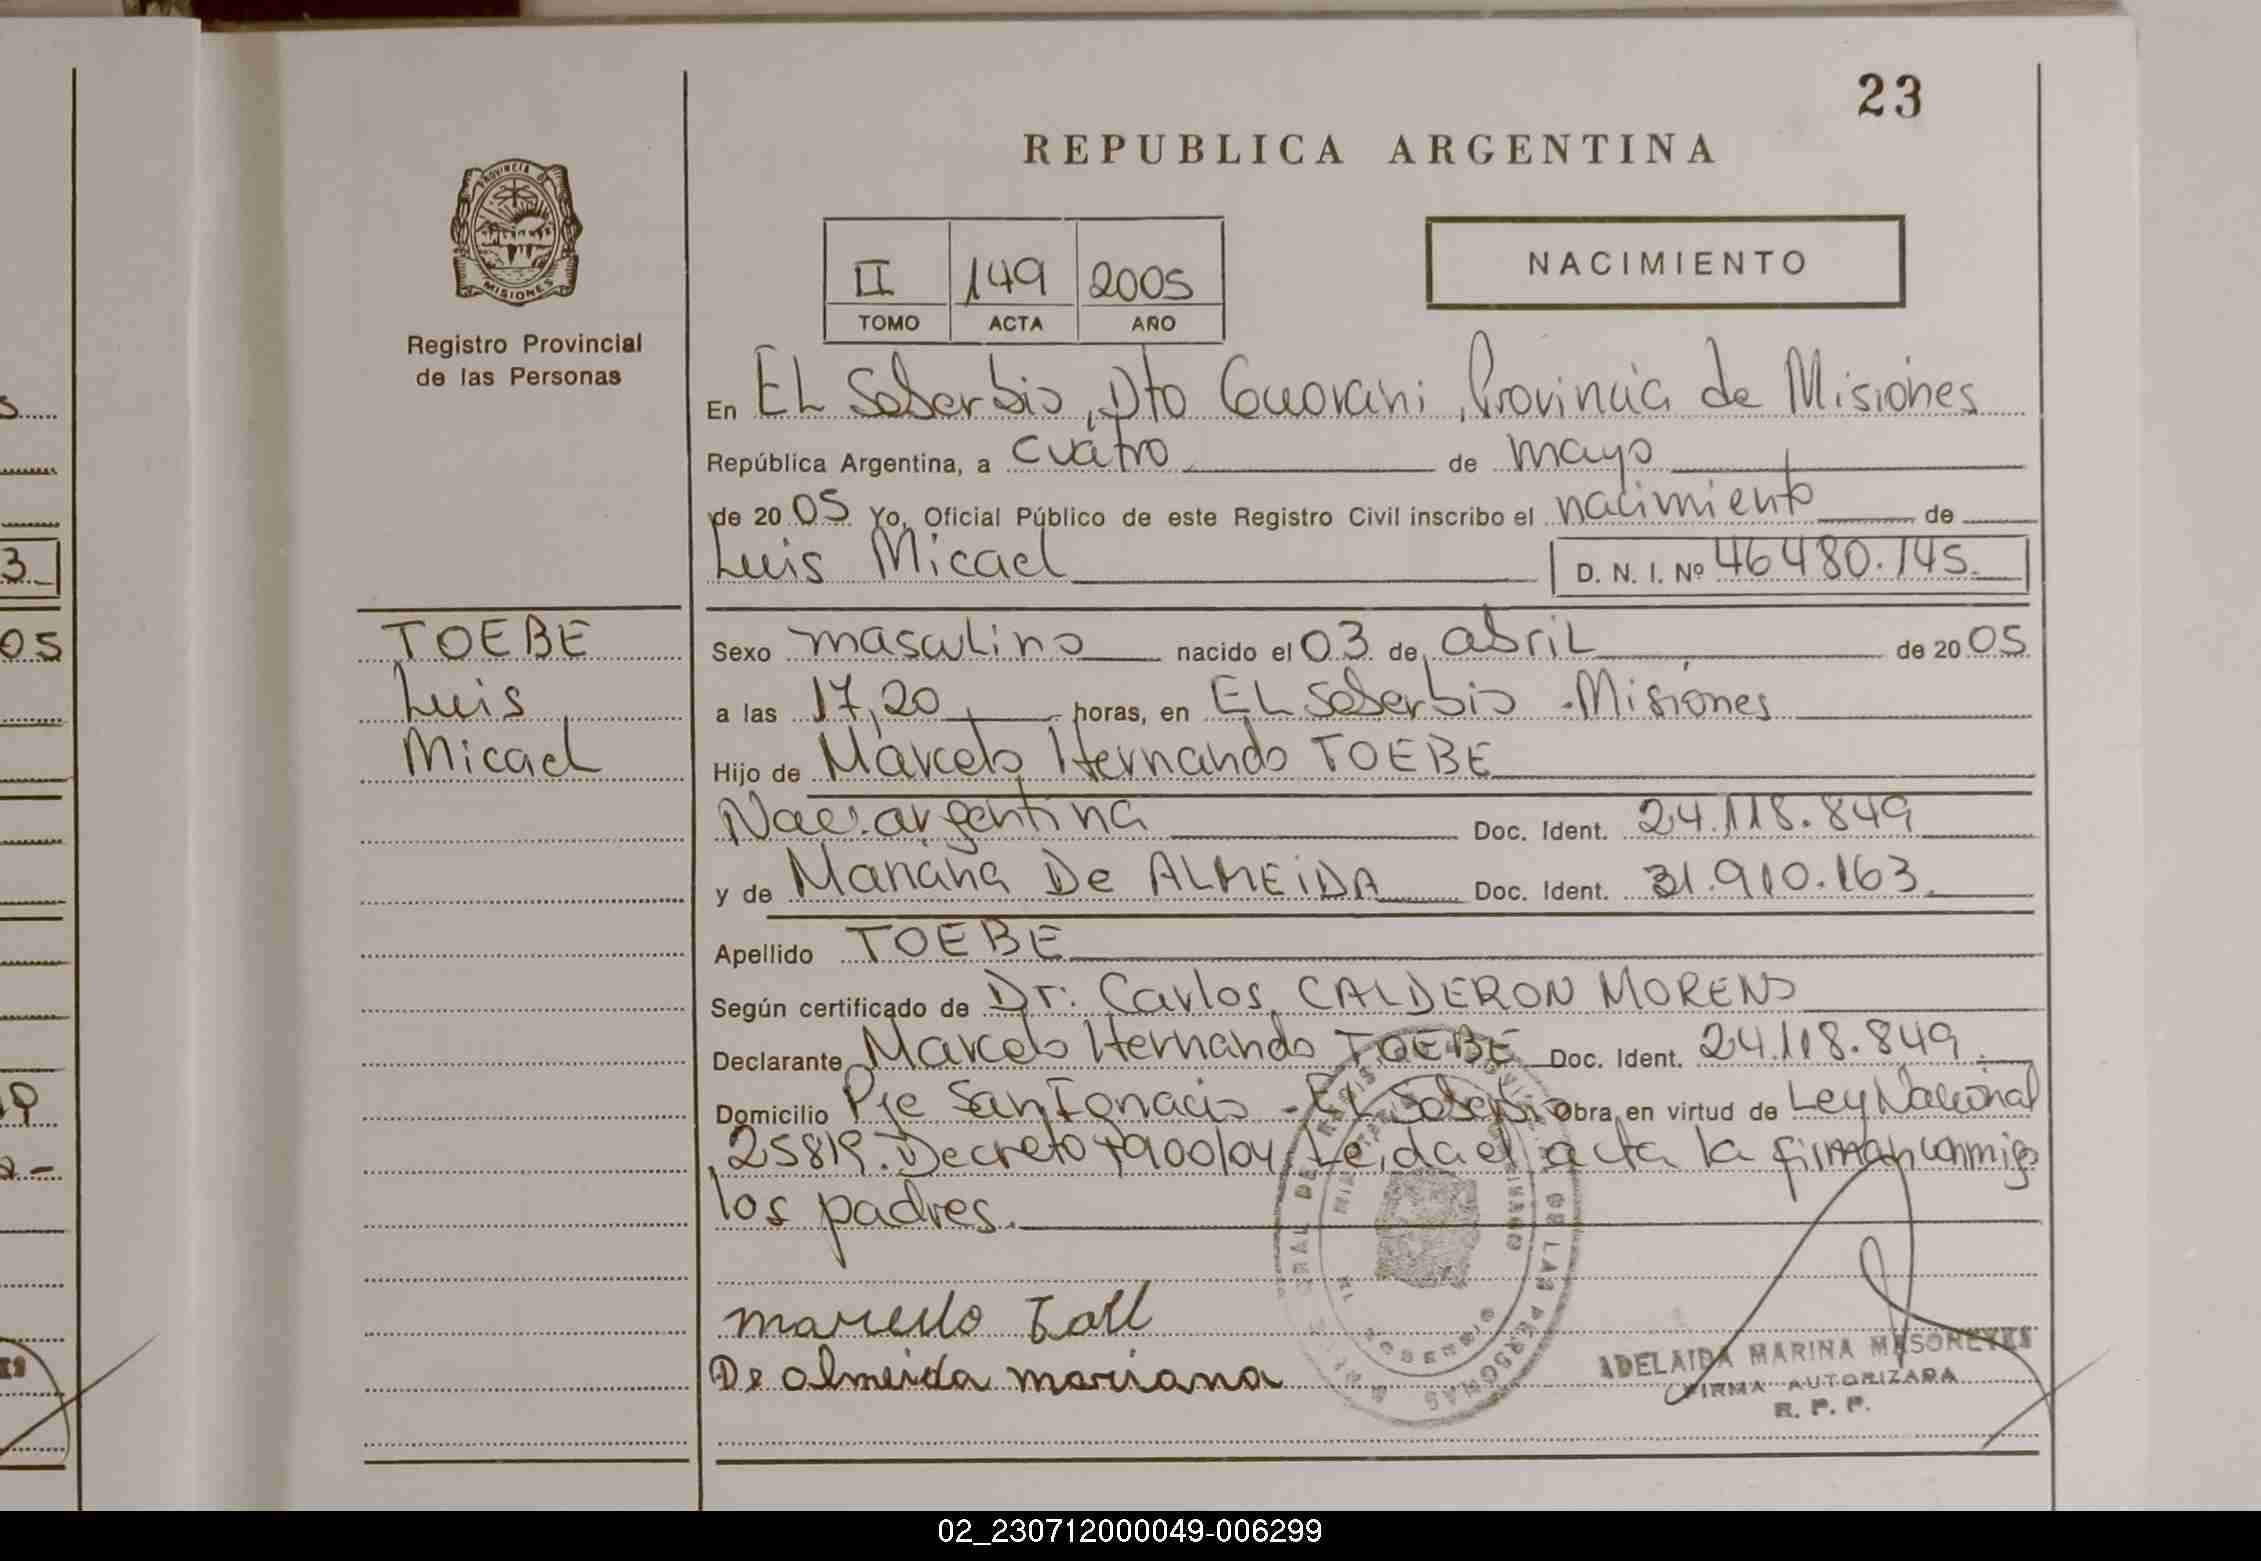 23
REPUBLICA ARGENTINA
PROVINCIA DE
MISIONES
Registro Provincial
de las Personas
II 149 2005
TOMO ACTA AÑO
NACIMIENTO
En EL Soberbio, Dto Guarani, Provincia de Misiones
República Argentina, a cuatro de mayo
de 2005 Yo, Oficial Público de este Registro Civil inscribo el nacimiento de
Luis Micael D. N. I. Nº 46480.145.
TOEBE
Luis
Micael
Sexo masculino nacido el 03 de abril de 2005
a las 17,20 horas, en EL Soberbio - Misiones
Hijo de Marcelo Hernando TOEBE
Nac. argentina Doc. Ident. 24.118.849
y de Mariana De ALMEiDA Doc. Ident. 31.910.163.
Apellido TOEBE
Según certificado de Dr. Carlos CALDERON MORENO
Declarante Marcelo Hernando TOEBE Doc. Ident. 24.118.849
Domicilio Pje San Ignacio - EL Soberbio Obra en virtud de Ley Nacional
25819. Decreto 1900/04. Leida el acta la firman conmigo
los padres.
marcelo
De almeida mariana
ADELAIDA MARINA
FIRMA AUTORIZADA
R. P. P.
3
05
02_230712000049-006299